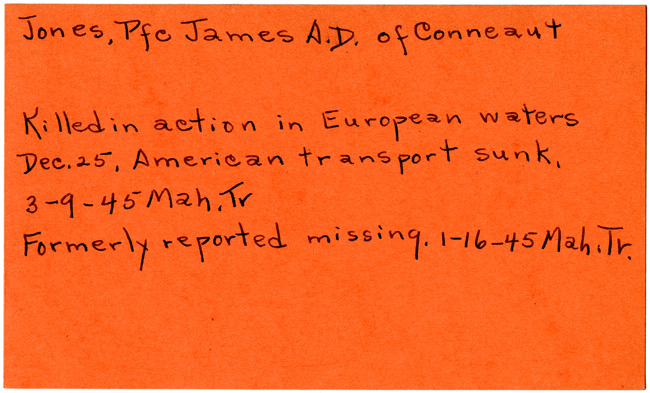 Jones, Pfc James A.D. of Conneaut
Killed in action in European waters
Dec. 25, American transport sunk.
3-9-45 Mah. Tr
Formerly reported missing. 1-16-45 Mah. Tr.